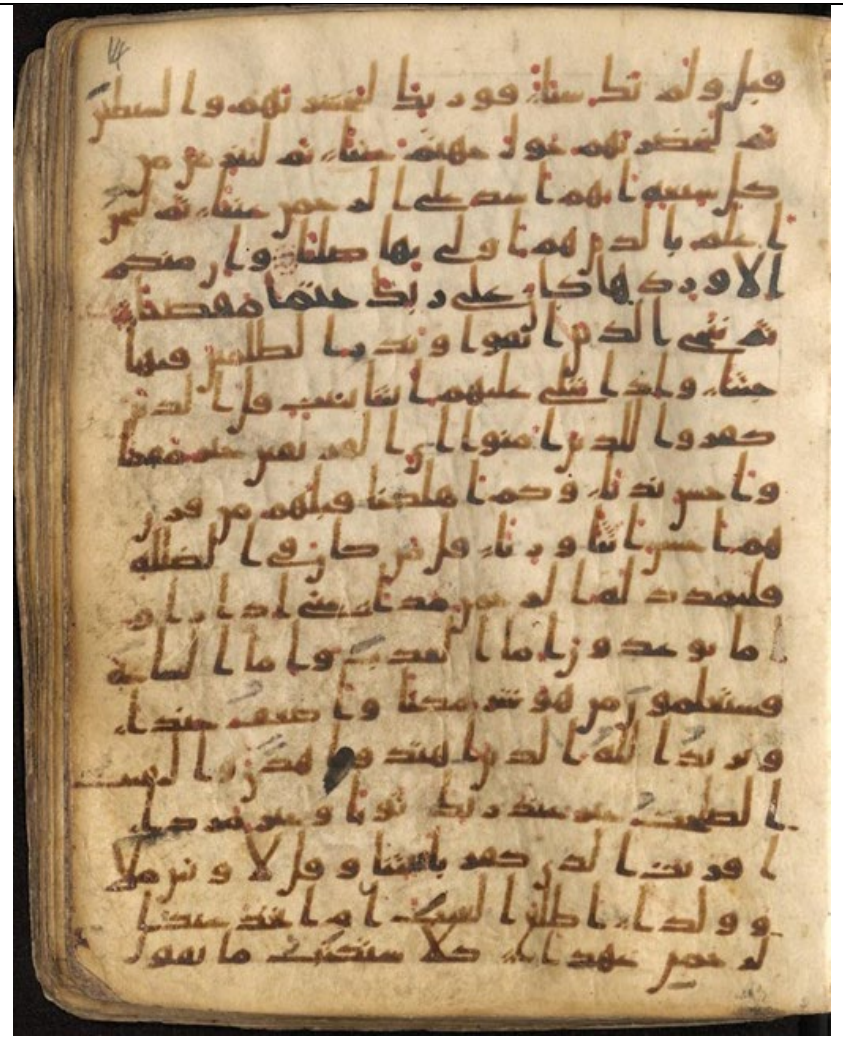 قبل ولم يك شيا فوربك لنحشرنهم والشيطين
ثم لنحضرنهم حول جهنم جثيا ثم لننزعن من
كل شيعة ايهم اشد على الرحمن عتيا ثم لنحن
اعلم بالذين هم اولى بها صليا وان منكم
الا وردها كان على ربك حتما مقضيا
ثم ننجي الذين اتقوا ونذر الظلمين فيها
جثيا واذا تتلى عليهم ايتنا بينت قال الذين
كفروا للذين امنوا اي الفريقين خير مقاما
واحسن نديا وكم اهلكنا قبلهم من قرن
هم احسن اثثا وريا قل من كان في الضللة
فليمدد له الرحمن مدا حتى اذا راو
ا ما يوعدون اما العذب واما الساعة
فسيعلمون من هو شر مكنا واضعف جندا
ويزيد الله الذين اهتدوا هدى والبقيت
الصلحت خير عند ربك ثوابا وخير مردا
افريت الذي كفر بايتنا وقال لاوتين مالا
وولدا اطلع الغيب ام اتخذ عند ا
لرحمن عهدا كلا سنكتب ما يقول